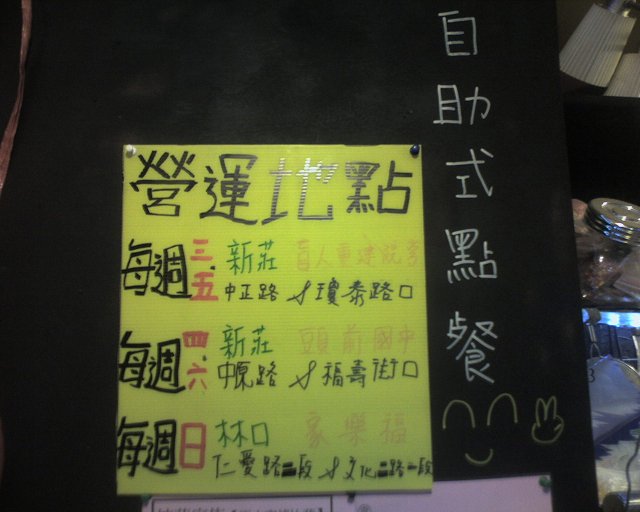 自助式點餐
營運地點
每週三.五 新莊 盲人重建院旁
中正路 & 瓊泰路口
每週四.六 新莊 頭前國中
中原路 & 福壽街口
每週日 林口 家樂福
仁愛路二段 & 文化二路一段